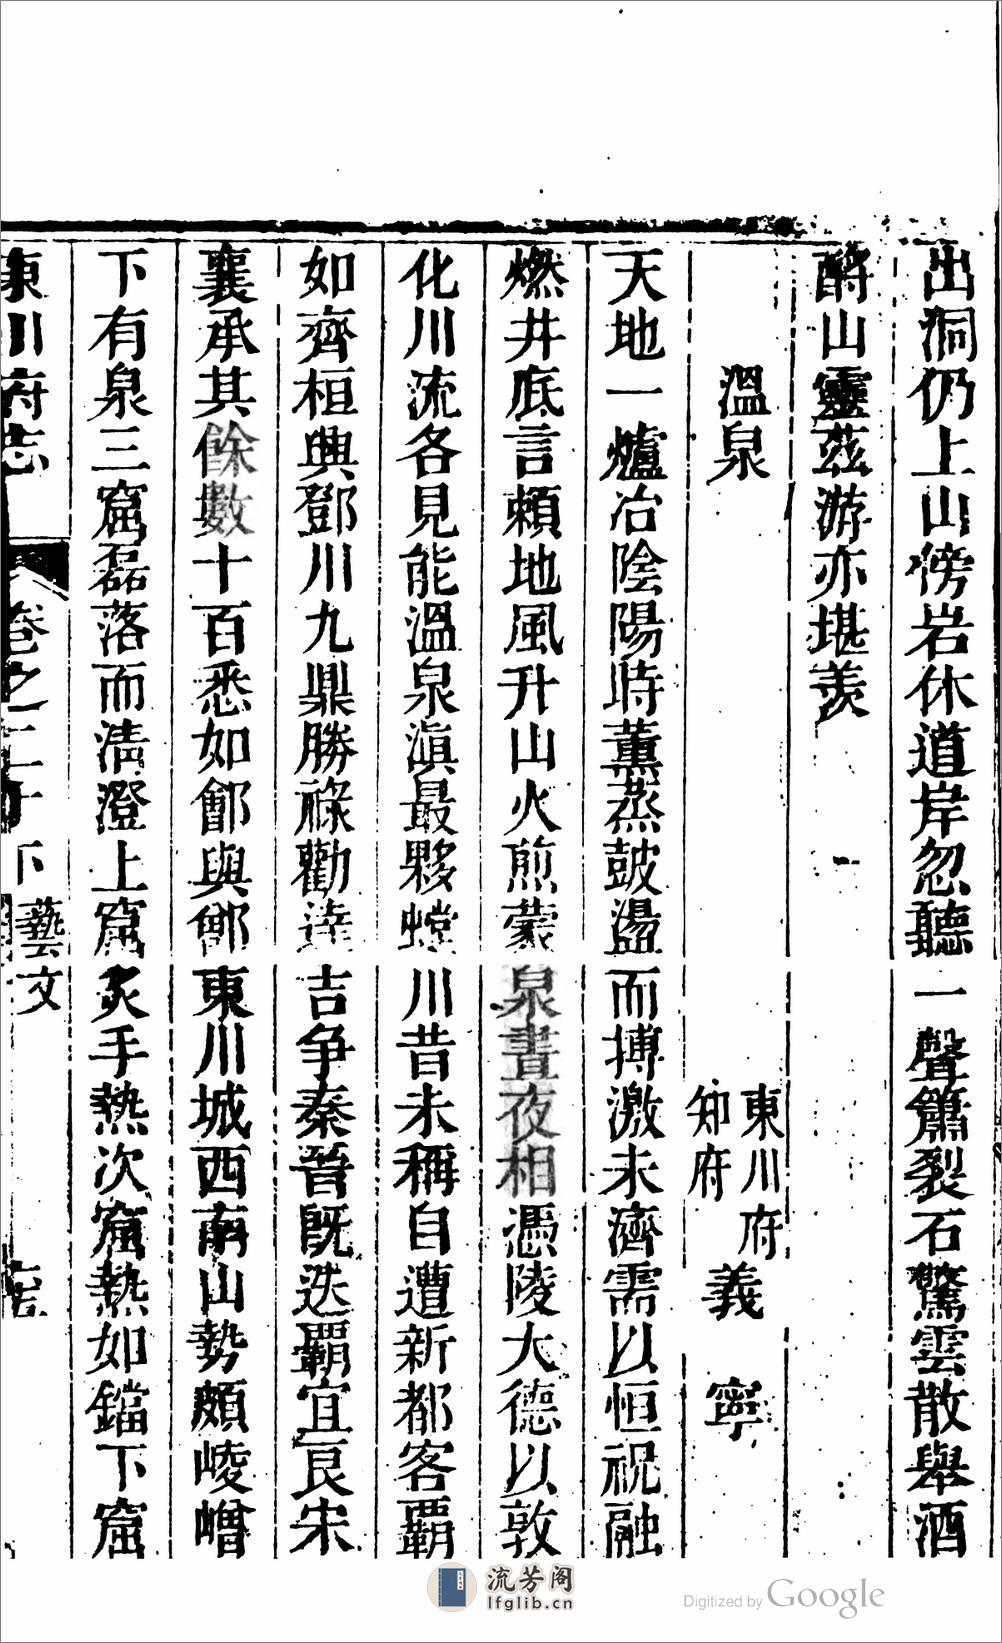 出洞仍上山傍岩休道岸忽聽一聲簫裂石驚雲散舉酒
酧山靈茲游亦堪羨
溫泉
東川府
知府
義寧
天地一爐冶陰陽時薰蒸鼓盪而摶激未濟需以恒祝融
燃井底言賴地風升山火煎蒙泉晝夜相憑陵大德以敦
化川流各見能溫泉滇最夥螳川昔未稱自遭新都客覇
如齊桓興鄧川九鼎勝祿勸達吉争秦晉旣迭覇宜良宋
襄承其餘數十百悉如鄫與鄉東川城西南山勢頗崚嶒
下有泉三窟磊落而清澄上窟炙手熱次窟熱如鐺下窟
東川府志
卷之二十下
藝文
流芳阁
lfglib.cn
Digitized by Google